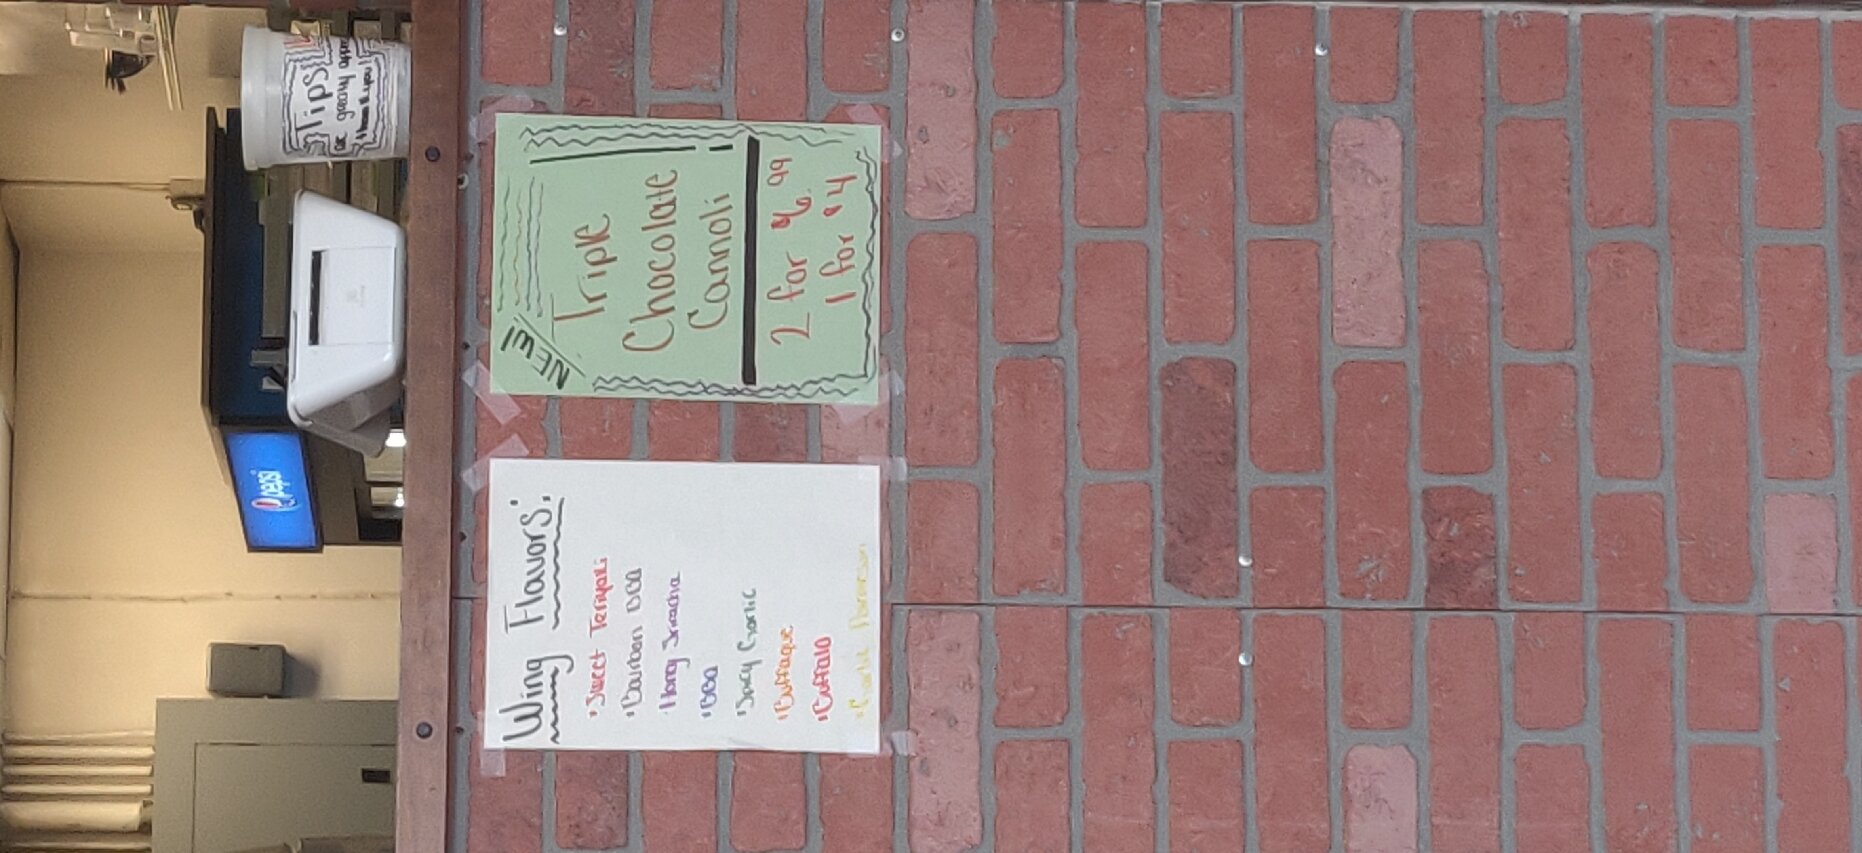 Wing Flavors:
• Sweet Teriyaki
• Bourbon BBQ
• Honey Sriracha
• BBQ
• Spicy Garlic
• Buffaque
• Buffalo
• Garlic Parmesan
NEW!
Triple
Chocolate
Cannoli
2 for $6.99
1 for $4
Tips
are greatly
Thank you!
pepsi